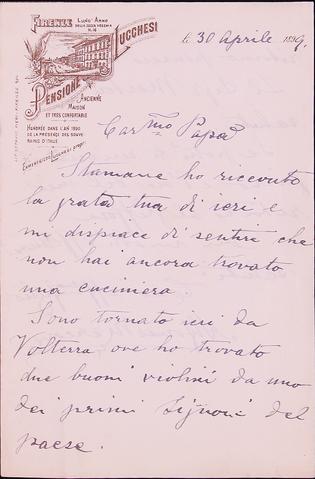 FIRENZE
LUNG' ARNO
DELLA ZECCA VECCHIA
N. 16
PENSIONE LUCCHESI
ANCIENNE
MAISON
ET TRÈS CONFORTABLE
HONORÉE DANS L'AN 1890
DE LA PRÉSENCE DES SOUVE
RAINS D'ITALIE
li 30 Aprile 1899.
Car.mo Papà
Stamane ho ricevuto
la grata tua di ieri e
mi dispiace di sentire che
non hai ancora trovato
una cuciniera.
Sono tornato ieri da
Volterra ove ho trovato
due buoni violini da uno
dei primi signori del
paese.